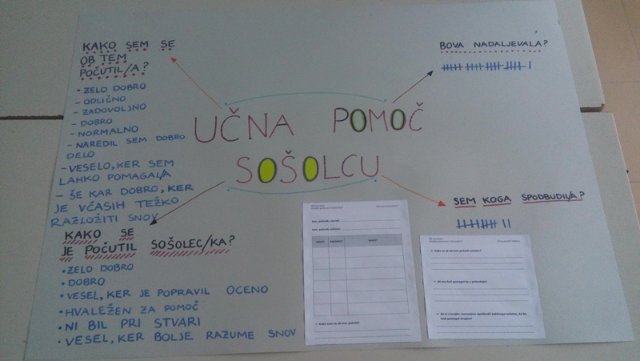 KAKO SEM SE
OB TEM
POČUTIL/A?
• ZELO DOBRO
- ODLIČNO
- ZADOVOLJNO
- DOBRO
- NORMALNO
- NAREDIL SEM DOBRO
DELO
- VESELO, KER SEM
LAHKO POMAGAL/A
- ŠE KAR DOBRO, KER
JE VČASIH TEŽKO
RAZLOŽITI SNOV
UČNA POMOČ
SOŠOLCU
BOVA NADALJEVALA?
SEM KOGA SPODBUDIL/A?
KAKO SE
JE POČUTIL SOŠOLEC/KA?
• ZELO DOBRO
• DOBRO
• VESEL, KER JE POPRAVIL OCENO
• HVALEŽEN ZA POMOČ
• NI BIL PRI STVARI
• VESEL, KER BOLJE RAZUME SNOV